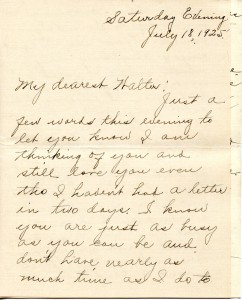 Saturday Evening
July 18, 1925
My dearest Walter;
Just a
few words this evening to
let you know I am
thinking of you and
still love you even
tho I havent had a letter
in two days. I know
you are just as busy
as you can be and
dont have nearly as
much time as I do to